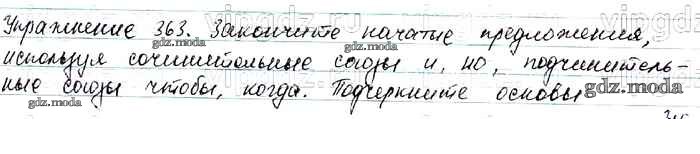 Упражнение 363. Закончите начатые предложения,
используя сочинительные союзы и, но, подчинитель-
ные союзы чтобы, когда. Подчеркните основы
gdz.moda
gdz.moda
gdz.moda
gdz.moda
gdz.moda